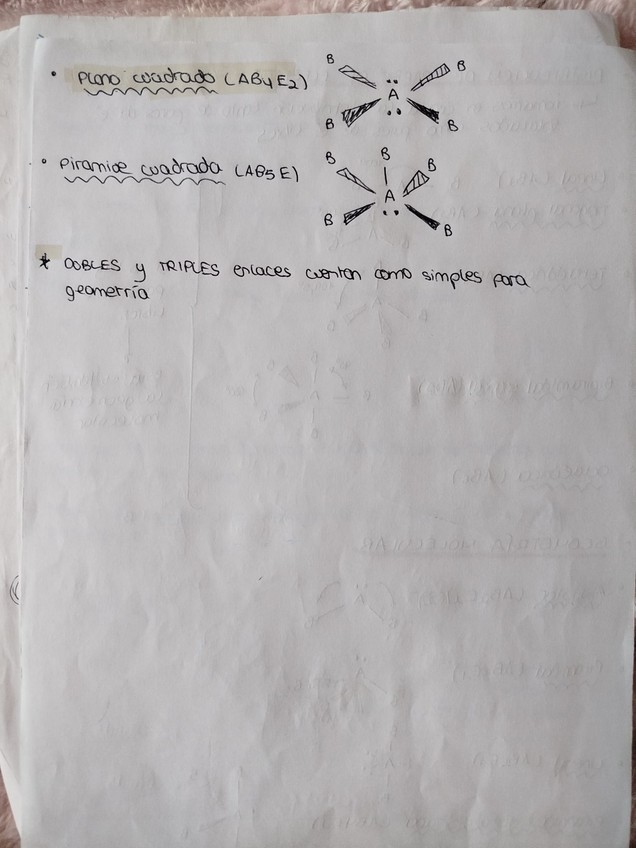 • Plano cuadrado (AB4E2)
B B
A
B B
• Piramide cuadrada (AB5E)
B B B
A
B B
* DOBLES y TRIPLES enlaces cuentan como simples para
geometría